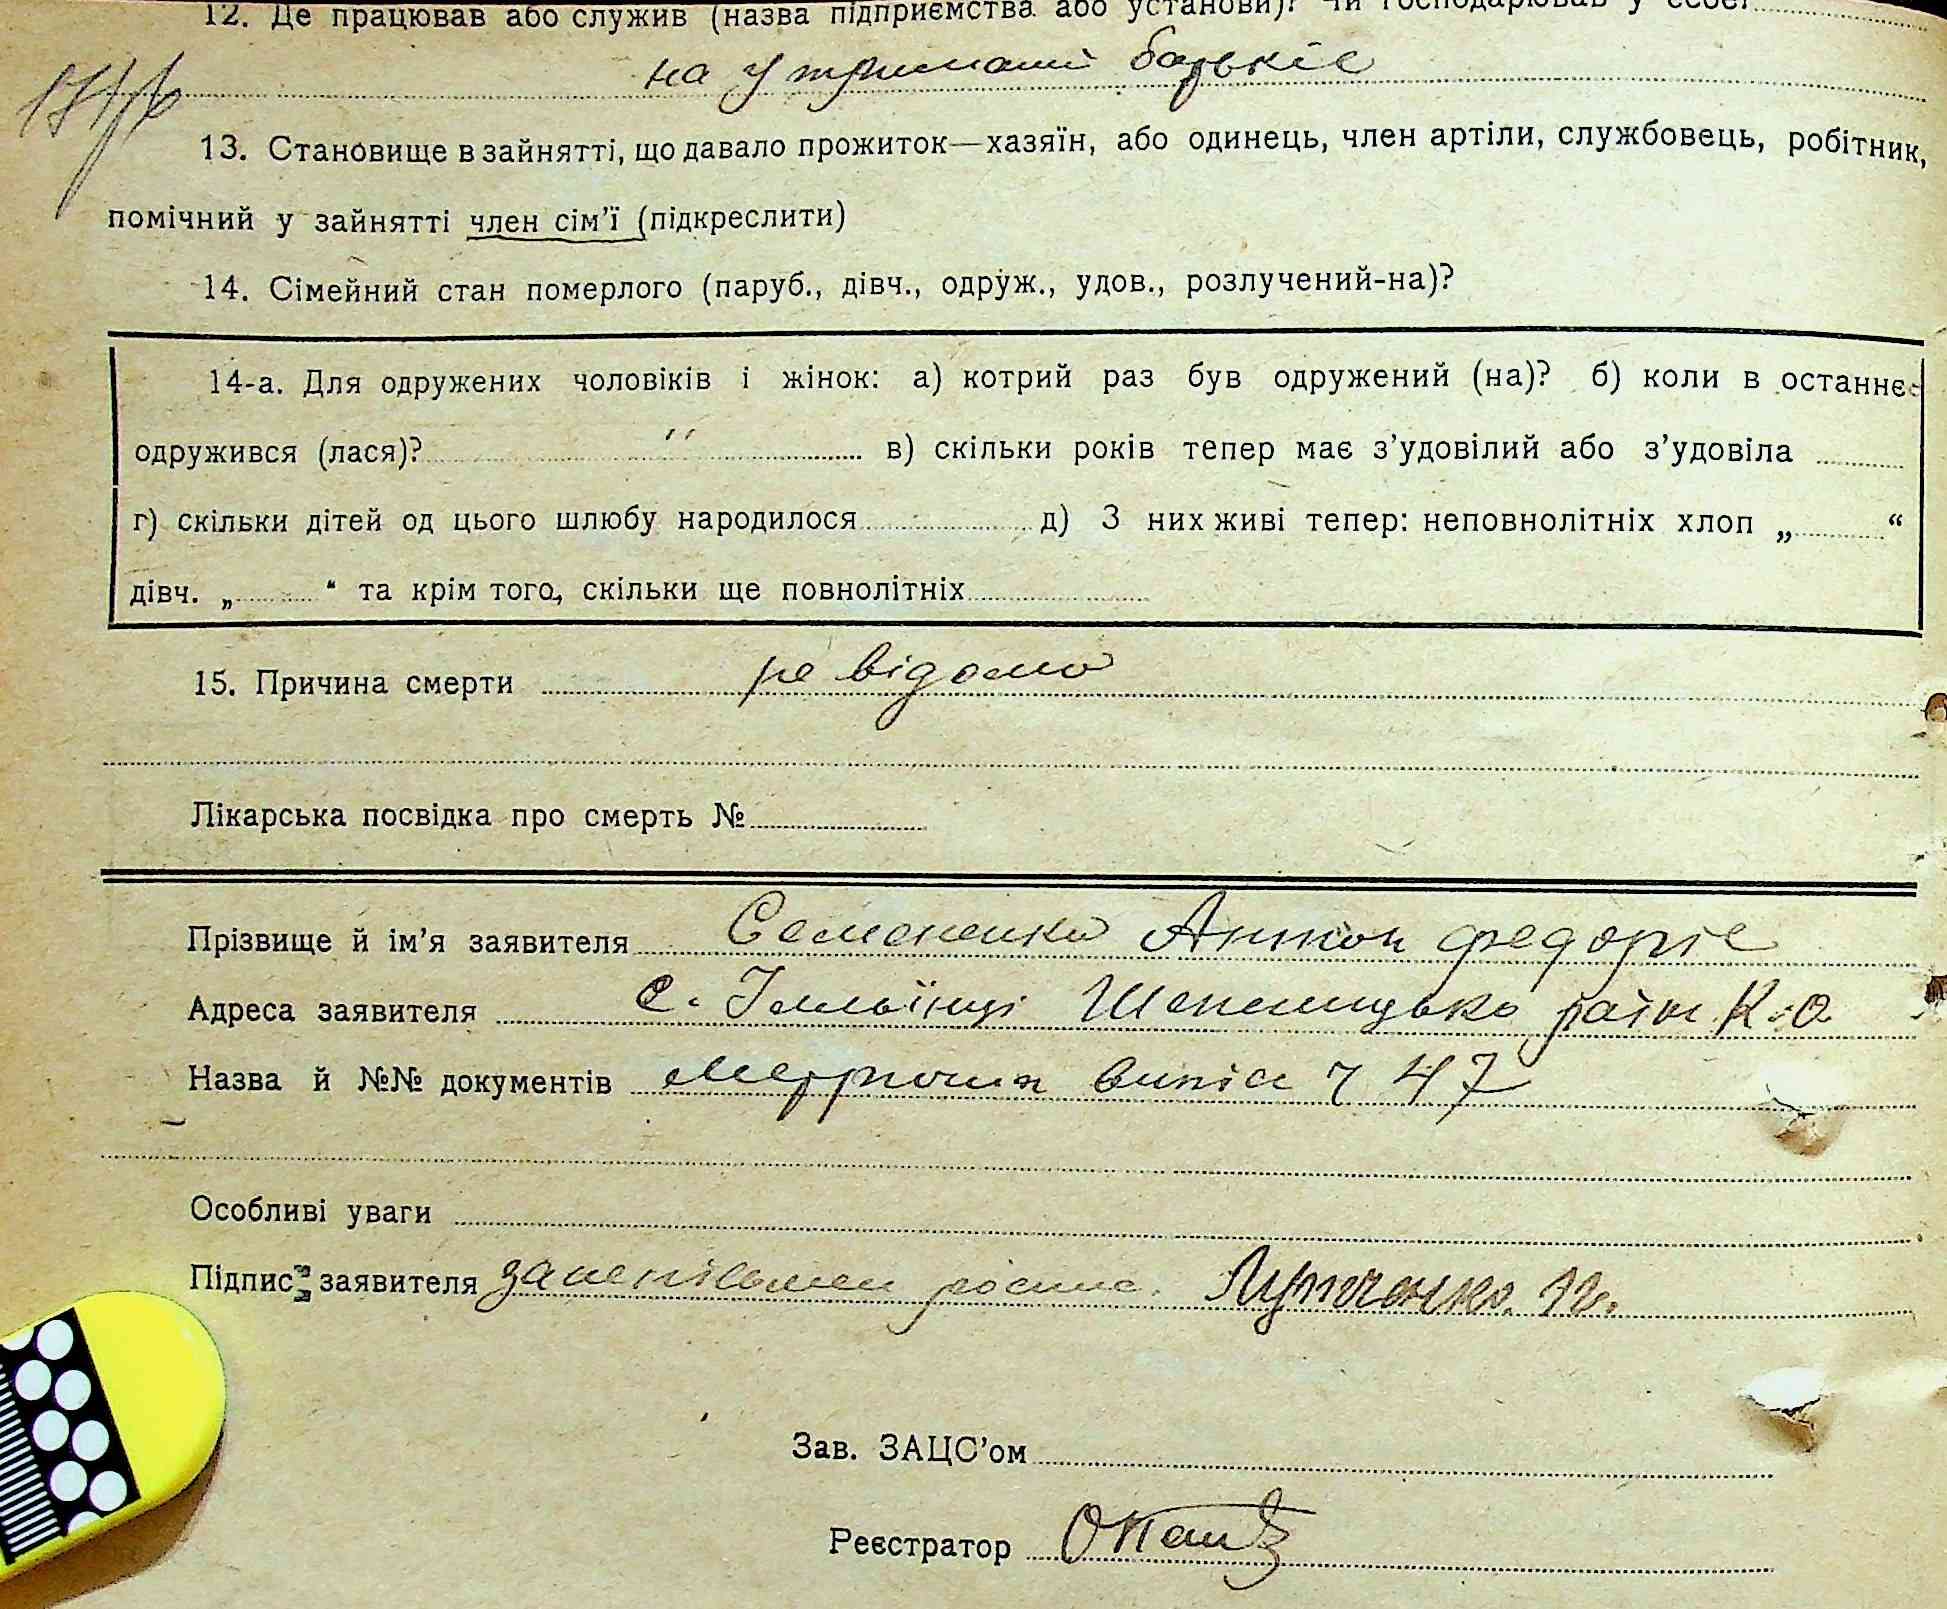 12. Де працював або служив (назва підприємства або установи)? Чи господарював у себе?
на утриманні батьків
13. Становище в зайнятті, що давало прожиток—хазяїн, або одинець, член артіли, службовець, робітник,
помічний у зайнятті член сім'ї (підкреслити)
14. Сімейний стан померлого (паруб., дівч., одруж., удов., розлучений-на)?
14-а. Для одружених чоловіків і жінок: а) котрий раз був одружений (на)? б) коли в останнє
одружився (лася)? в) скільки років тепер має з'удовілий або з'удовіла
г) скільки дітей од цього шлюбу народилося д) З них живі тепер: неповнолітніх хлоп „ “
дівч. „ “ та крім того, скільки ще повнолітніх
15. Причина смерти не відомо
Лікарська посвідка про смерть №
Прізвище й ім'я заявителя Семененко Антон Федорів
Адреса заявителя с. Ілльїнці Шепелицько район К. О.
Назва й №№ документів випис ч 47
Особливі уваги
Підпис заявителя за неписьмен
Зав. ЗАЦС'ом
Реєстратор